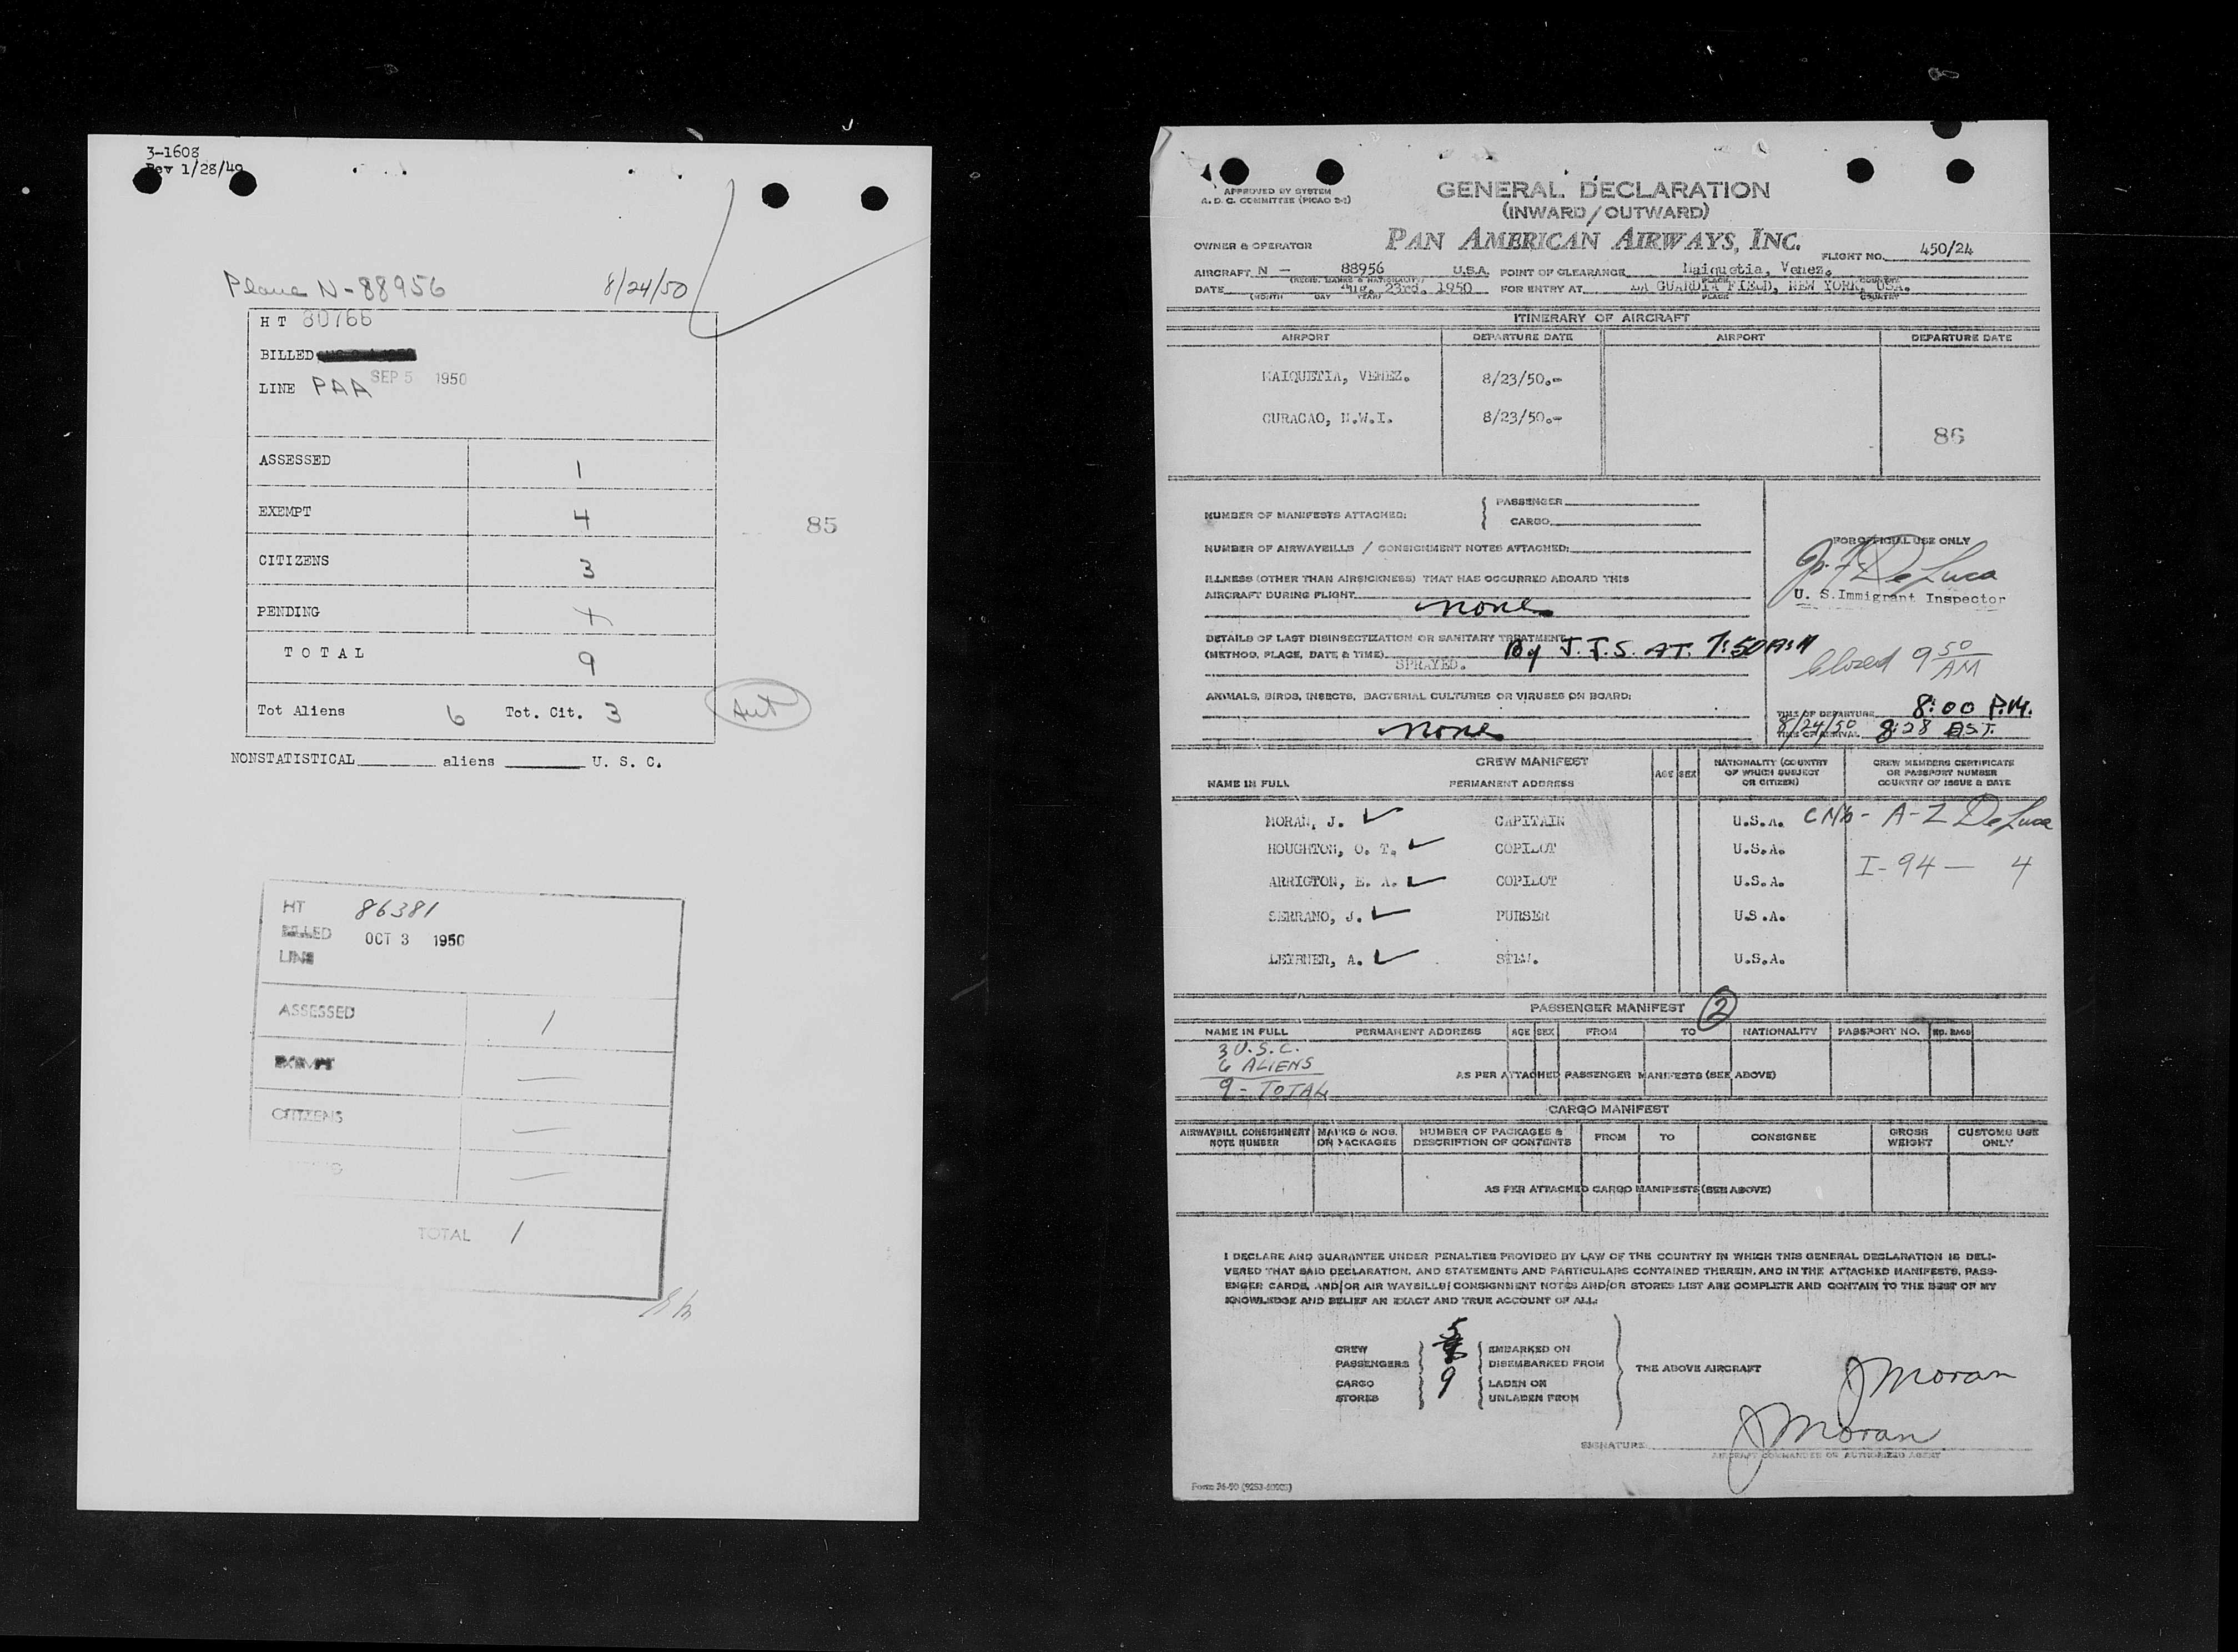 3-1608
Rev 1/28/49
Plane N-88956 8/24/50
HT 80766
BILLED
SEP 5 1950
LINE PAA
ASSESSED 1
EXEMPT 4
CITIZENS 3
PENDING
TOTAL 9
Tot Aliens 6 Tot. Cit. 3
NONSTATISTICAL aliens U. S. C.
85
HT 86381
BILLED OCT 3 1950
LINE
ASSESSED 1
EXEMPT —
CITIZENS —
—
TOTAL 1
APPROVED BY SYSTEM
A. D. C. COMMITTEE (PICAO 2-1)
GENERAL DECLARATION
(INWARD/OUTWARD)
OWNER & OPERATOR PAN AMERICAN AIRWAYS, INC.
FLIGHT NO. 450/24
AIRCRAFT N - 88956 U.S.A. POINT OF CLEARANCE Maiquetia, Venez.
(REGIS. MARKS & NATIONALITY) PLACE COUNTRY
DATE Aug. 23rd. 1950 FOR ENTRY AT LA GUARDIA FIELD, NEW YORK, USA.
(MONTH DAY YEAR) PLACE COUNTRY
ITINERARY OF AIRCRAFT
AIRPORT DEPARTURE DATE AIRPORT DEPARTURE DATE
MAIQUETIA, VENEZ. 8/23/50.-
CURACAO, N.W.I. 8/23/50.-
86
NUMBER OF MANIFESTS ATTACHED: { PASSENGER
CARGO
NUMBER OF AIRWAYBILLS / CONSIGNMENT NOTES ATTACHED:
ILLNESS (OTHER THAN AIRSICKNESS) THAT HAS OCCURRED ABOARD THIS
AIRCRAFT DURING FLIGHT none
DETAILS OF LAST DISINSECTIZATION OR SANITARY TREATMENT
(METHOD, PLACE, DATE & TIME) SPRAYED. By J.F.S. AT. 7:50 A.M
ANIMALS, BIRDS, INSECTS, BACTERIAL CULTURES OR VIRUSES ON BOARD:
none
FOR OFFICIAL USE ONLY
J. F. De Luca
U. S. Immigrant Inspector
Closed 9 50 AM
TIME OF DEPARTURE 8:00 P.M.
8/24/50
TIME OF ARRIVAL 8:28 EST.
CREW MANIFEST
NAME IN FULL PERMANENT ADDRESS AGE SEX NATIONALITY (COUNTRY OF WHICH SUBJECT OR CITIZEN) CREW MEMBERS CERTIFICATE OR PASSPORT NUMBER COUNTRY OF ISSUE & DATE
MORAN, J. CAPITAIN U.S.A. A-Z De Luca
HOUGHTON, O. T. COPILOT U.S.A.
I-94 — 4
ARRIGTON, E. A. COPILOT U.S.A.
SERRANO, J. PURSER U.S.A.
LEYBNER, A. STEW. U.S.A.
PASSENGER MANIFEST 2
NAME IN FULL PERMANENT ADDRESS AGE SEX FROM TO NATIONALITY PASSPORT NO. NO. BAGS
3 U.S.C.
6 ALIENS
9 - TOTAL
AS PER ATTACHED PASSENGER MANIFESTS (SEE ABOVE)
CARGO MANIFEST
AIRWAYBILL CONSIGNMENT NOTE NUMBER MARKS & NOS. ON PACKAGES NUMBER OF PACKAGES & DESCRIPTION OF CONTENTS FROM TO CONSIGNEE GROSS WEIGHT CUSTOMS USE ONLY
AS PER ATTACHED CARGO MANIFESTS (SEE ABOVE)
I DECLARE AND GUARANTEE UNDER PENALTIES PROVIDED BY LAW OF THE COUNTRY IN WHICH THIS GENERAL DECLARATION IS DELI-
VERED THAT SAID DECLARATION, AND STATEMENTS AND PARTICULARS CONTAINED THEREIN, AND IN THE ATTACHED MANIFESTS, PASS-
ENGER CARDS, AND/OR AIR WAYBILLS/CONSIGNMENT NOTES AND/OR STORES LIST ARE COMPLETE AND CONTAIN TO THE BEST OF MY
KNOWLEDGE AND BELIEF AN EXACT AND TRUE ACCOUNT OF ALL:
CREW 5 EMBARKED ON
PASSENGERS DISEMBARKED FROM THE ABOVE AIRCRAFT
CARGO 9 LADEN ON
STORES UNLADEN FROM
J Moran
J Moran
SIGNATURE
AIRCRAFT COMMANDER OR AUTHORIZED AGENT